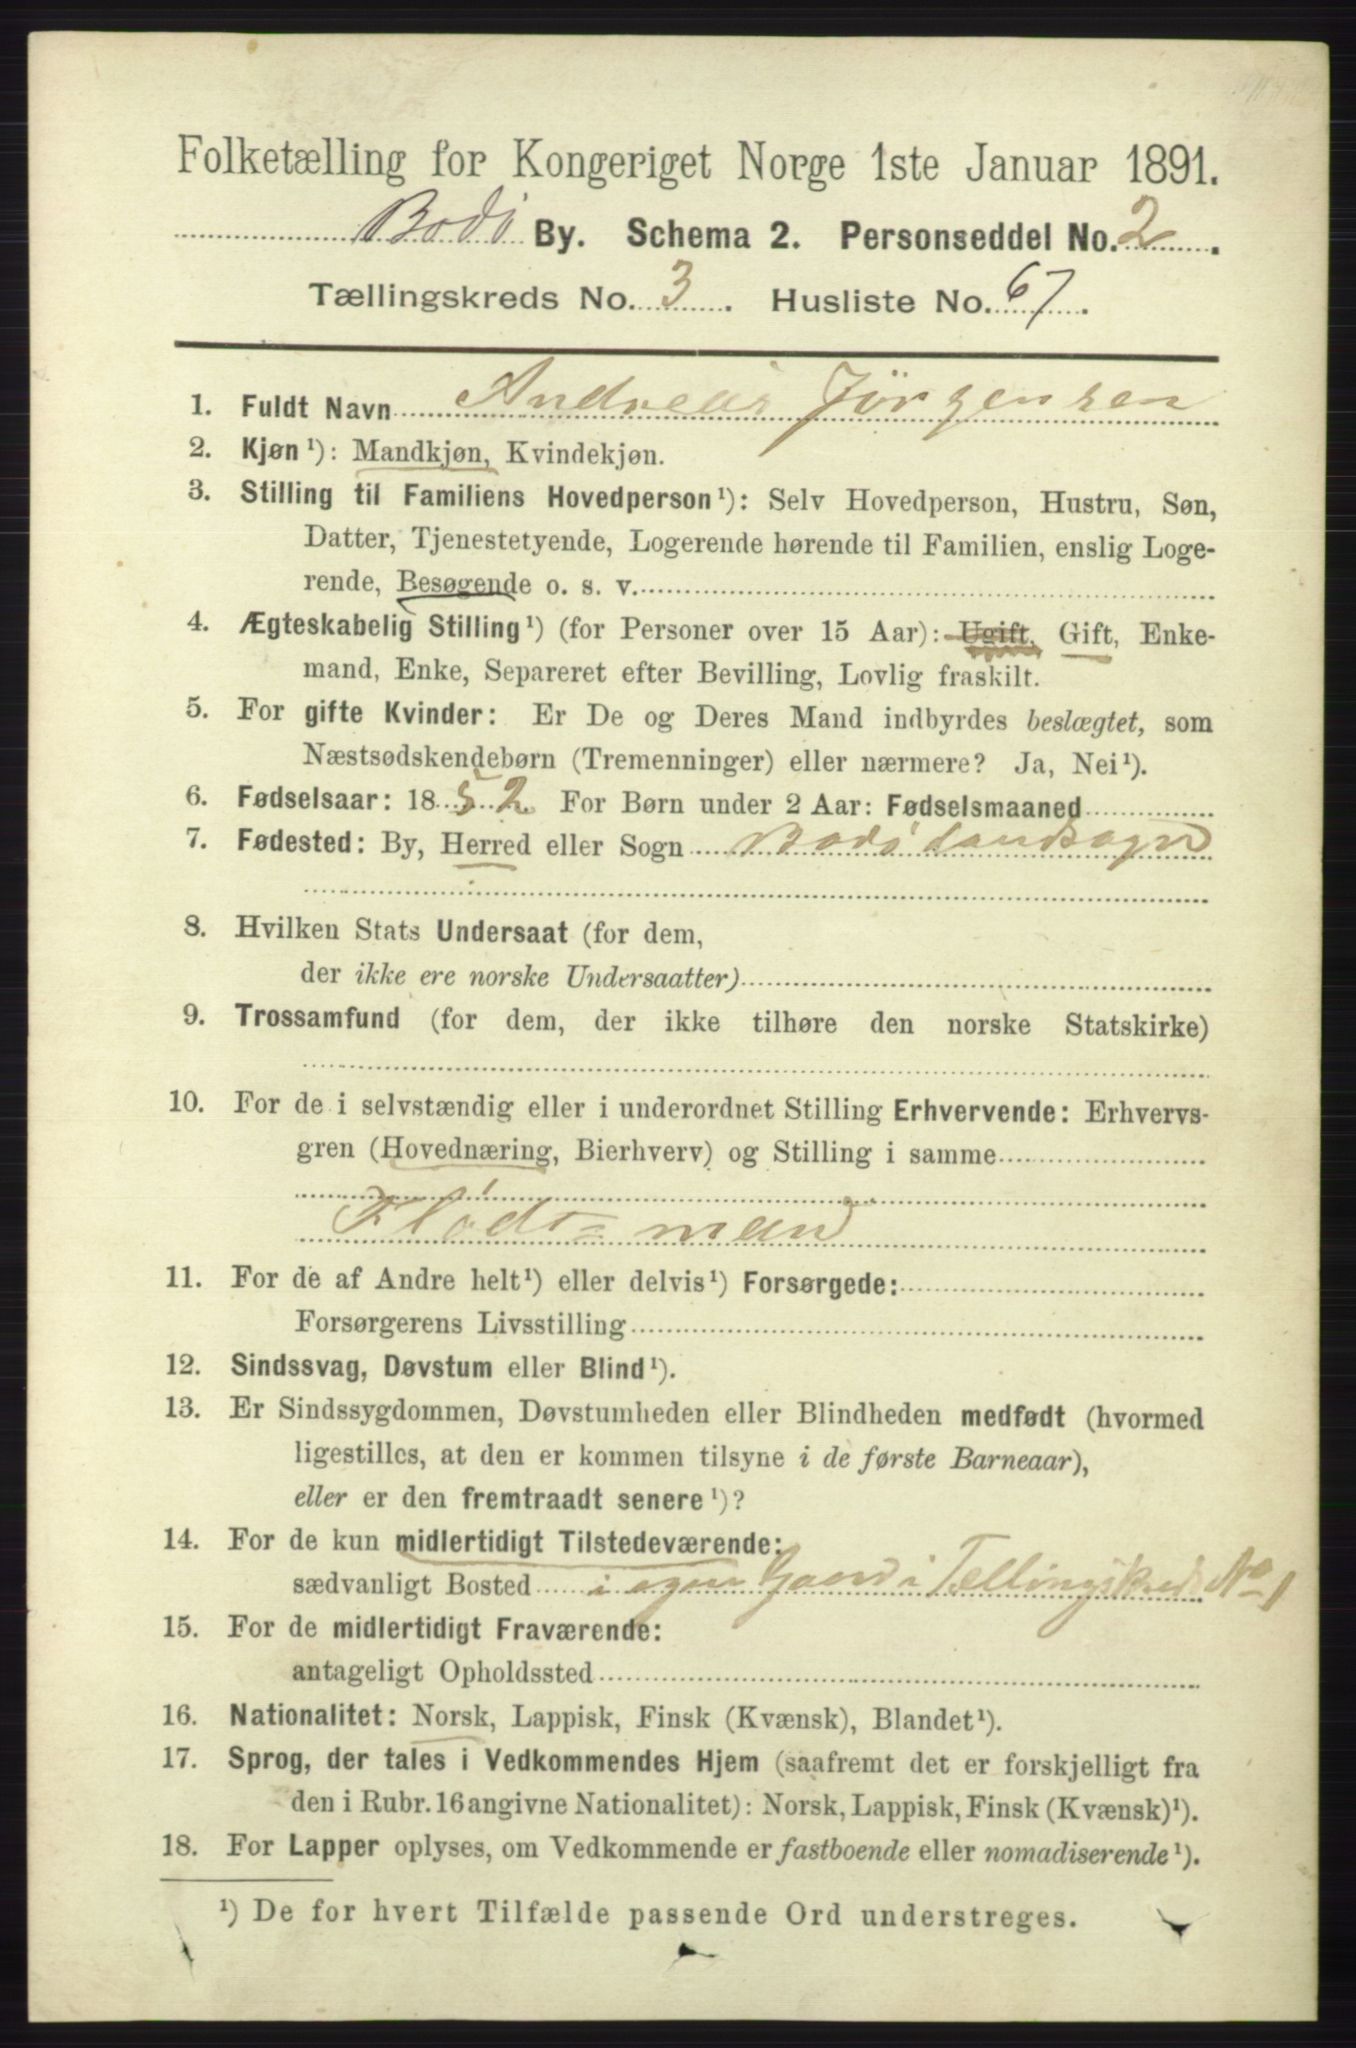 Folketælling for Kongeriget Norge 1ste Januar 1891.
Bodø By. Schema 2. Personseddel No. 2.
Tællingskreds No. 3. Husliste No. 67.
1. Fuldt Navn Andreas Jörgensen
2. Kjøn¹): Mandkjøn, Kvindekjøn.
3. Stilling til Familiens Hovedperson¹): Selv Hovedperson, Hustru, Søn,
Datter, Tjenestetyende, Logerende hørende til Familien, enslig Loge-
rende, Besøgende o. s. v.
4. Ægteskabelig Stilling¹) (for Personer over 15 Aar): Ugift, Gift, Enke-
mand, Enke, Separeret efter Bevilling, Lovlig fraskilt.
5. For gifte Kvinder: Er De og Deres Mand indbyrdes beslægtet, som
Næstsødskendebørn (Tremenninger) eller nærmere? Ja, Nei¹).
6. Fødselsaar: 1852 For Børn under 2 Aar: Fødselsmaaned
7. Fødested: By, Herred eller Sogn Bodø Landsogn
8. Hvilken Stats Undersaat (for dem,
der ikke ere norske Undersaatter)
9. Trossamfund (for dem, der ikke tilhøre den norske Statskirke)
10. For de i selvstændig eller i underordnet Stilling Erhvervende: Erhvervs-
gren (Hovednæring, Bierhverv) og Stilling i samme
Flødt=mand
11. For de af Andre helt¹) eller delvis¹) Forsørgede:
Forsørgerens Livsstilling
12. Sindssvag, Døvstum eller Blind¹).
13. Er Sindssygdommen, Døvstumheden eller Blindheden medfødt (hvormed
ligestilles, at den er kommen tilsyne i de første Barneaar),
eller er den fremtraadt senere¹)?
14. For de kun midlertidigt Tilstedeværende:
sædvanligt Bosted i egen Gaard i Tællingskreds No 1
15. For de midlertidigt Fraværende:
antageligt Opholdssted
16. Nationalitet: Norsk, Lappisk, Finsk (Kvænsk), Blandet¹).
17. Sprog, der tales i Vedkommendes Hjem (saafremt det er forskjelligt fra
den i Rubr. 16 angivne Nationalitet): Norsk, Lappisk, Finsk (Kvænsk)¹).
18. For Lapper oplyses, om Vedkommende er fastboende eller nomadiserende¹).
¹) De for hvert Tilfælde passende Ord understreges.